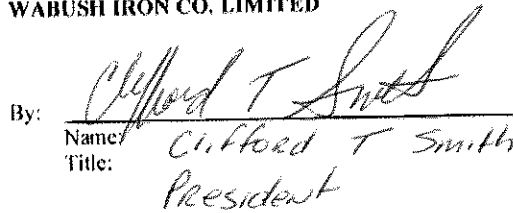 WABUSH IRON CO. LIMITED
Clifford T Smith
By:
Name: Clifford T Smith
Title:
President